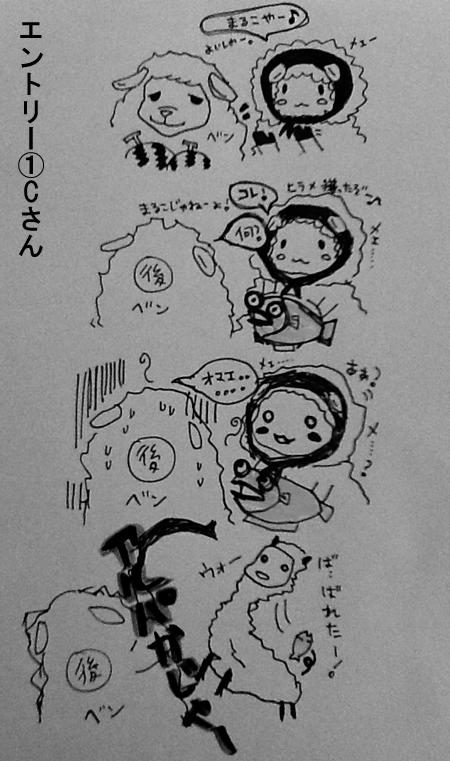 エントリー①Cさん
まるこやー♪
よいしゃー。
メェー
ベン
ヒラメ獲ったどー
コレ!
何?
まるこじゃねーよ!
メェ……
後
ベン
メェ……
オマエ……
あぁ?
メ……?
後
ベン
ば…ばれたー!
ウォー
アルパカじゃー
後
ベン